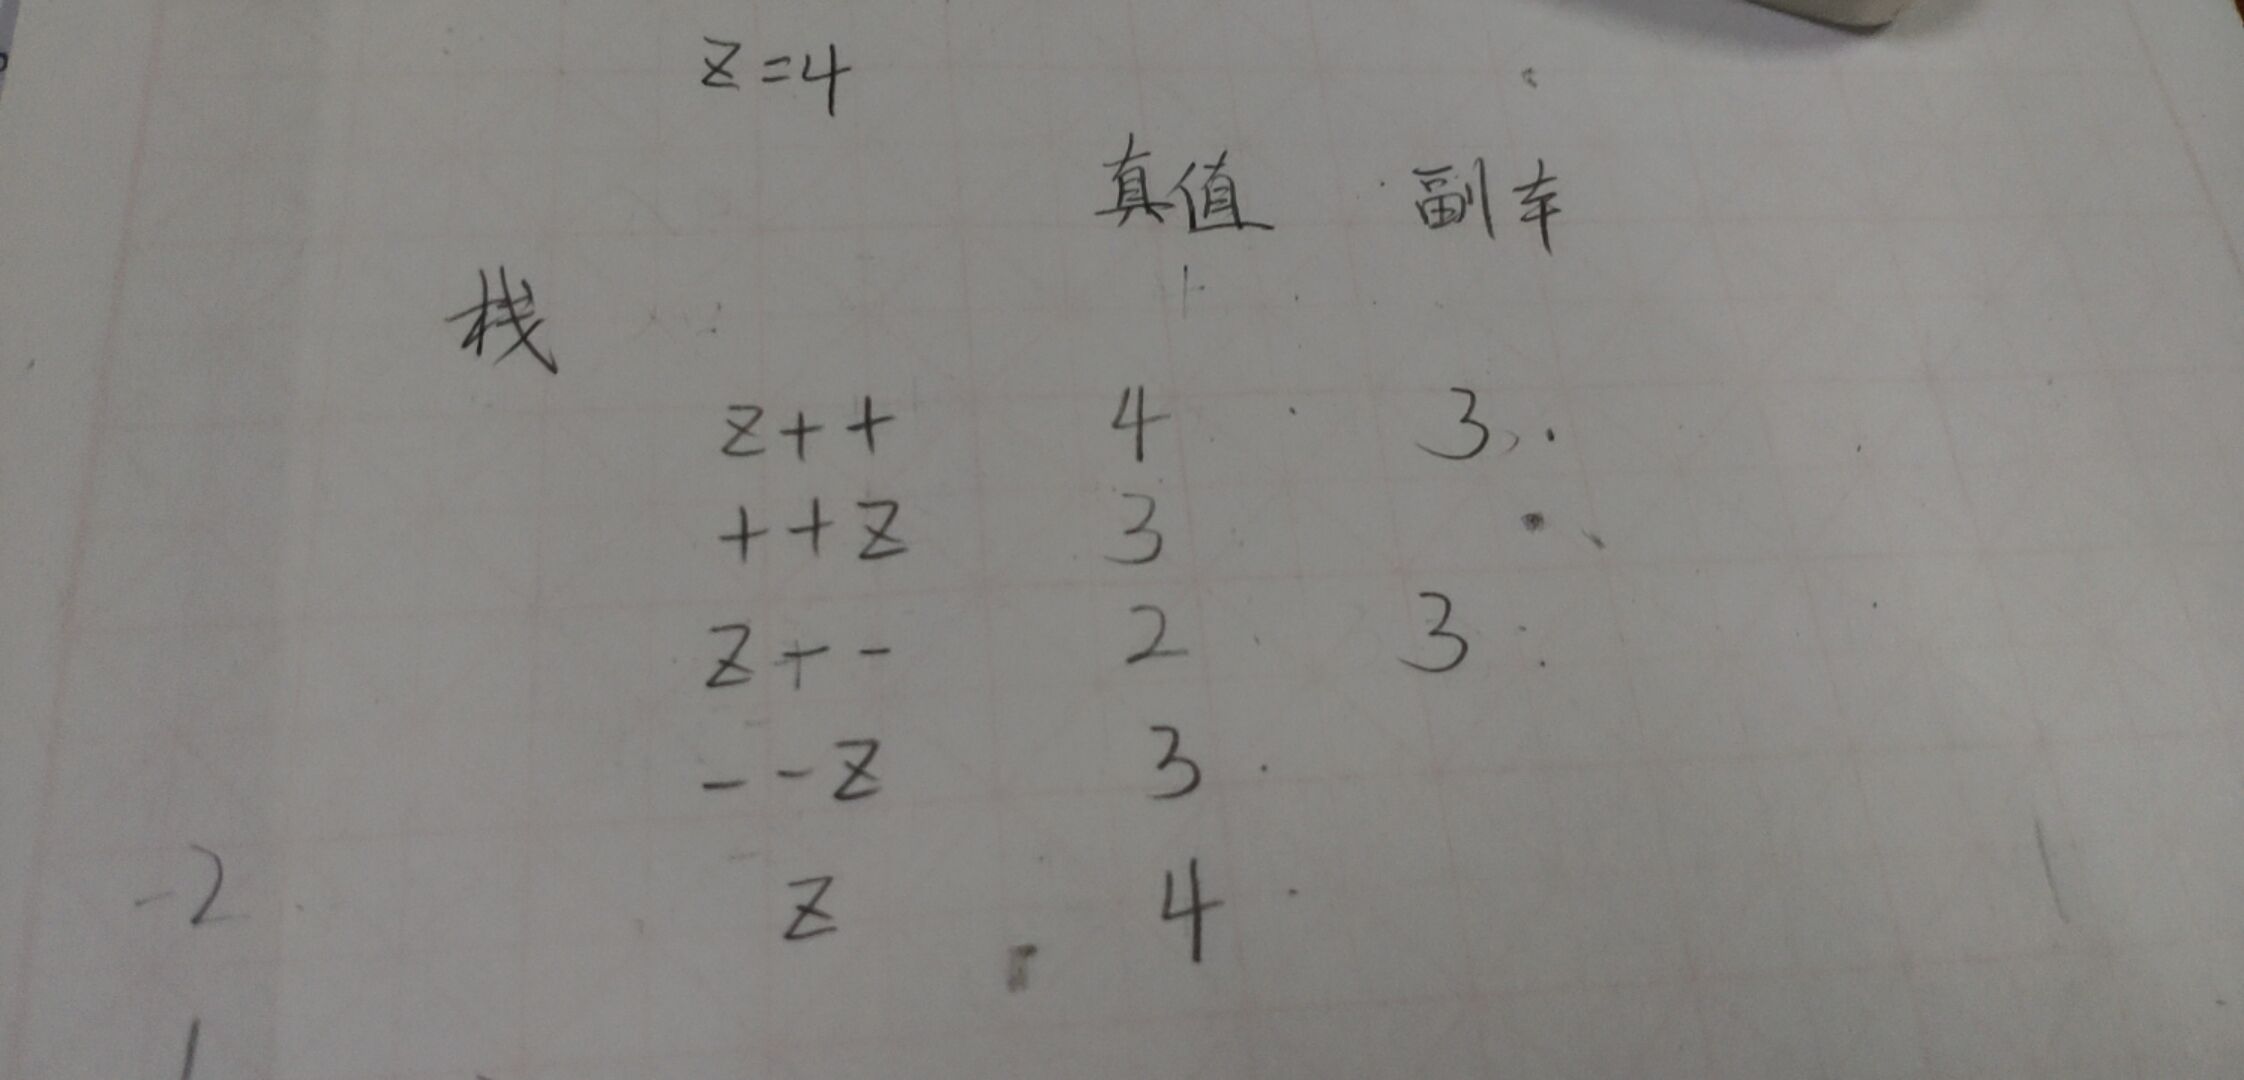 z=4
真值 副本
栈
z++ 4 3
++z 3
z+- 2 3
--z 3
-2 z 4